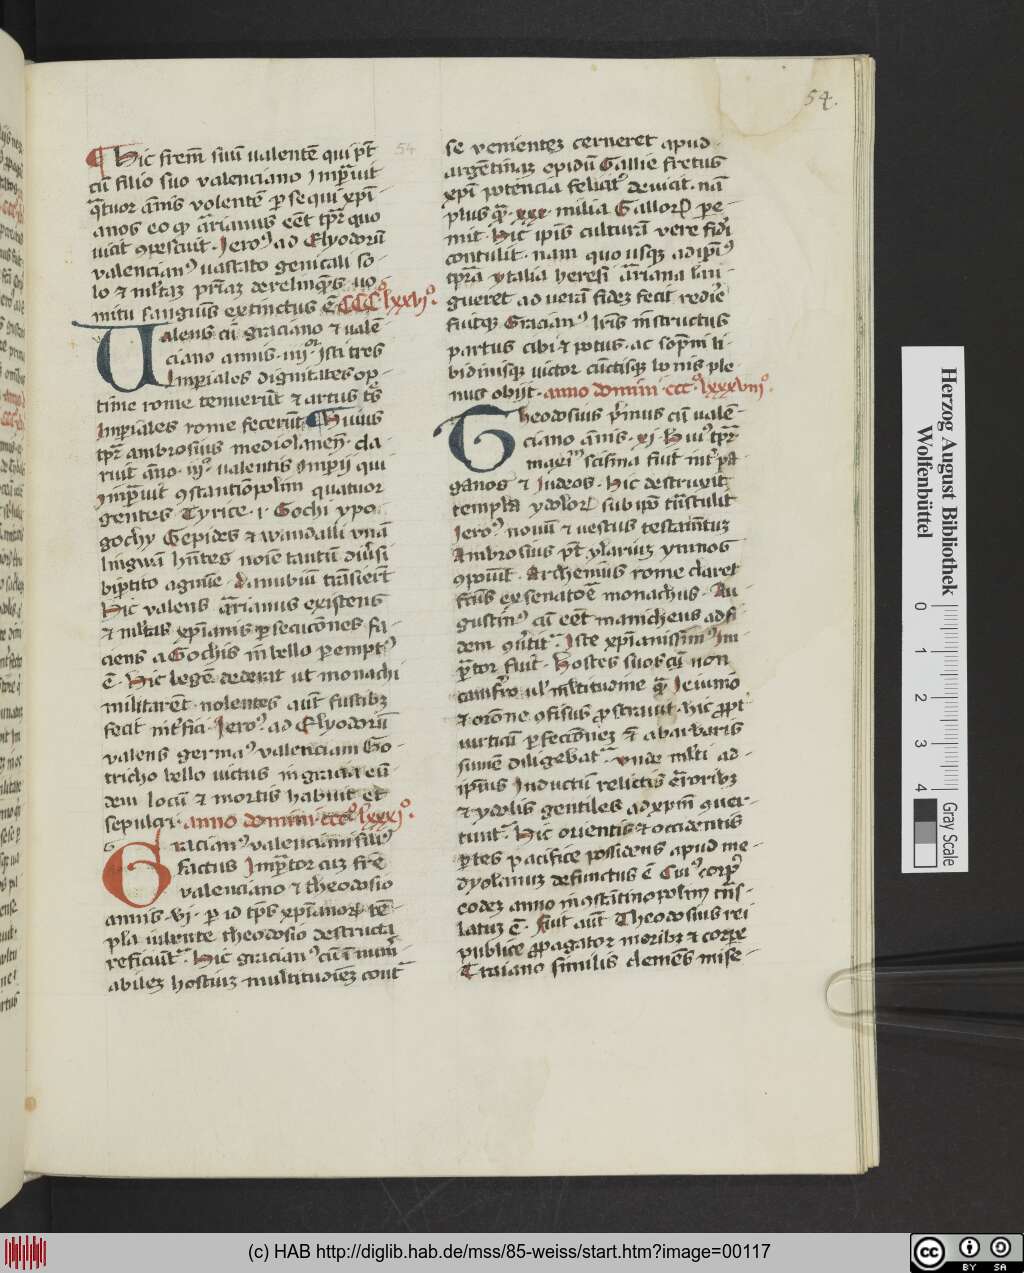 54.
54
Hic frem̄ suū valentē qui pꝰt
cū filio suo valenciano Imꝑauit
q̄tuor ānis volentē ꝑsequi xp̄i
anos eo qꝫ arrianus eēt tp̄r quo
uicit ꝯpescuit · Jeroꝰ ad Elyodorū
valencianꝰ uastato genitali so-
lo ⁊ ml̄taꝫ pr̄iaꝫ derelinq̄ns uo
mitu sanguīs extinctus ē CCCºlxxviiº.
Ualens cū graciano ⁊ valē
ciano annis · iiijor Isti tres
Imꝑiales dignitates op-
time rome tenuerūt ⁊ artus
Imꝑiales rome fecerūt Huius
tp̄r ambrosius mediolanen̄ · cla
ruit āno · iijº · valentis Imꝑij qui
Imꝑauit ꝯstantiōpolim quatuor
gentes Tyrice · i · Gochi ypo
gochy Gepides ⁊ wandalli vnā
lingwā hn̄tes noīe tantū diūsi
biptito agmīe · danubiū trāsierūt
Hic valens arrianus existens
⁊ ml̄tas xp̄ianis ꝑsecucōnes fa-
ciens a Gochis in bello ꝑemptꝰ
ē · Hic legē dederat ut monachi
militarēt · nolentes aūt fustibꝫ
fecit int̄fici · Jeroꝰ · ad Elyodorū
valens germaꝰ valenciani Go-
tricho bello uictus in gracia eū-
dem locū ⁊ mortis habuit et
sepulcri · anno domini cccº lxxxjº.
Gracianꝰ valenciani filiꝰ
factus Imꝑator cuꝫ frē
valenciano ⁊ theodosio
annis · vi · ꝑ id tp̄s xp̄ianorꝫ tē-
pla iubente theodosio destructa
reficiunt̄ · Hic gracianꝰ cū innum̄-
abileꝫ hostiuꝫ multitudīeꝫ cont̄
se venienteꝫ cerneret apud-
argētinaꝫ opidū Gallie fretus
xp̄i potencia felicit̄ deuicit · nā
plus q̄ · xxx · milia Gallorꝫ ꝑe-
mit · Hic ipīs culturā vere fidi
contulit · nam quo usqꝫ ad ipīꝰ
tp̄ra ytalia heresi arriana lan-
gueret ad uerā fideꝫ fecit redīe
fuitqꝫ Gracianꝰ lr̄is instructus
partus cibi ⁊ potus · ac sopnī li-
bidinisqꝫ uictor cūctisqꝫ bonis ple
nus obijt · anno domini cccº lxxxviiiº.
Theodosius p̄mus cū valē-
ciano ānis · xj · Huiꝰ tp̄r
magnū scisma fuit int̄ pa-
ganos ⁊ Judeos · Hic destruxit
templa ydolorꝫ sub ipō trāstulit
Jeroꝰ nouū ⁊ uetus testamētuꝫ
Ambrosius pꝰt ylariuꝫ ymnos
ꝯposuit · Archenius rome claret
frūs ex senatorē monachus · Au-
gustinꝰ cū eēt manicheus ad fi
dem ꝯūtit̄ · Iste xp̄ianissimꝰ Im
ꝑator fuit · hostes suos cū non
tam ferro ul̄ ml̄titudine q̄ Jeiunio
⁊ orōne ꝯfisus ꝓstrauit · hic ꝓpt̄
uirtutū ꝑfectioneꝫ etiā a barbaris
summē diligebat̄ · vnde ml̄ti ad-
ipīus Inductū relictis errorībꝫ
⁊ ydolis gentiles ad xp̄m ꝯuer-
tunt̄ · Hic orientis ⁊ occidentis
ꝑtes pacifice possidens apud me-
dyolanuꝫ defunctus ē Cuiꝰ corpꝰ
eodeꝫ anno in ꝯstātinopolim trās-
latuꝫ ē · Fuit aūt Theodosius rei
publice ꝓpagator moribꝫ ⁊ corpe
Traiano similis clemēs mise-
Herzog August Bibliothek
Wolfenbüttel
0 1 2 3 4
Gray Scale
(c) HAB http://diglib.hab.de/mss/85-weiss/start.htm?image=00117
cc BY SA